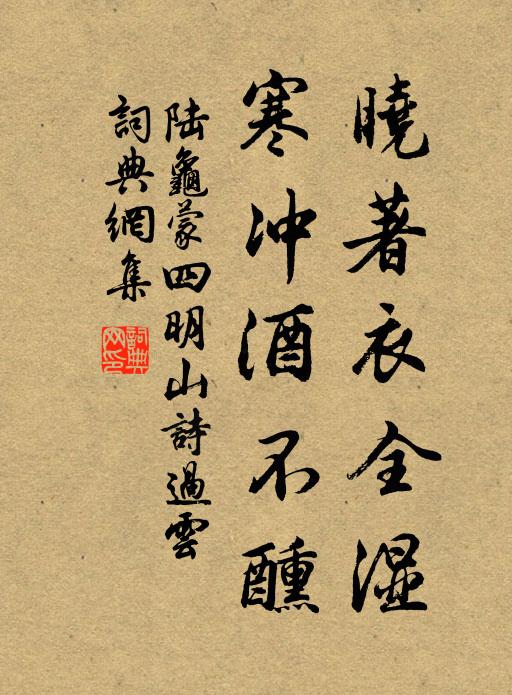 曉著衣全濕
寒冲酒不醺
陆龜蒙四明山詩過雲
詞典網集
詞典网印